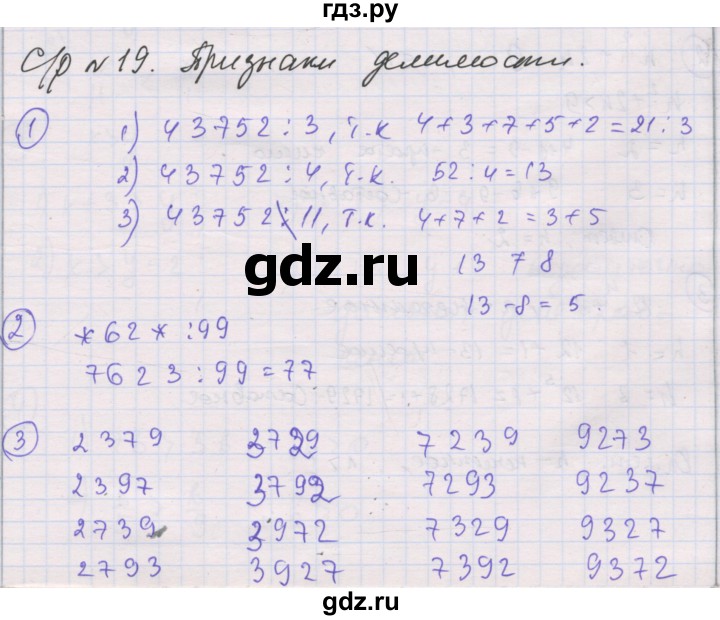 гдз.ру
С/р №19. Признаки делимости.
1 1) 43752 : 3, т.к 4+3+7+5+2=21 : 3
2) 43752 : 4, т.к. 52 : 4 = 13
3) 43752 ⋮̸ 11, т.к. 4+7+2 = 3+5
13 ≠ 8
gdz.ru
13 - 8 = 5.
2 *62* : 99
7623 : 99 = 77
3 2379 3729 7239 9273
2397 3792 7293 9237
2739 3972 7329 9327
2793 3927 7392 9372
gdz.ru